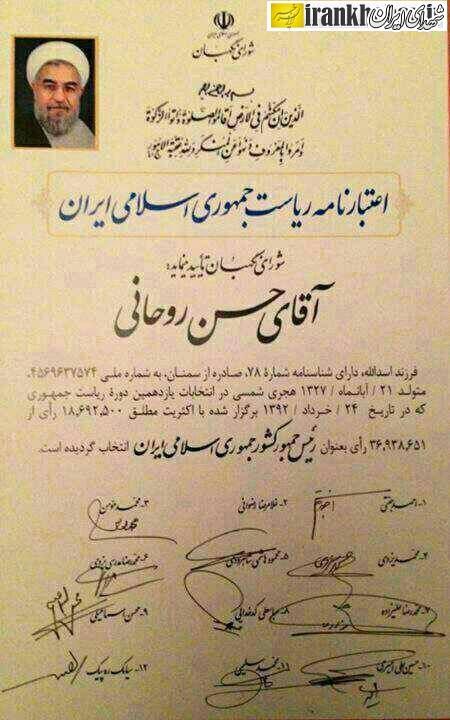 irankh
شهدای ایران
جمهوری اسلامی ایران
شورای نگهبان
بسم الله الرحمن الرحیم
الذین ان مکناهم فی الارض اقاموا الصلوة و اتوا الزکوة
و امروا بالمعروف و نهوا عن المنکر و لله عاقبة الامور
اعتبارنامه ریاست جمهوری اسلامی ایران
شورای نگهبان تأیید می‌نماید:
آقای حسن روحانی
فرزند اسدالله، دارای شناسنامه شمارهٔ ۷۸، صادره از سمنان، به شماره ملی ۴۵۶۹۶۳۷۵۷۴،
متولد ۲۱ / آبانماه / ۱۳۲۷ هجری شمسی در انتخابات یازدهمین دورهٔ ریاست جمهوری
که در تاریخ ۲۴ / خرداد / ۱۳۹۲ برگزار شده با اکثریت مطلق ۱۸,۶۹۲,۵۰۰ رأی از
۳۶,۹۳۸,۶۵۱ رأی بعنوان رئیس جمهور کشور جمهوری اسلامی ایران انتخاب گردیده است.
۱- احمد جنتی
۲- غلامرضا رضوانی
۳- محمد مؤمن
۴- محمد یزدی
۵- محمود هاشمی شاهرودی
۶- محمدرضا مدرسی یزدی
۷- محمدرضا علیزاده
۸- عباسعلی کدخدایی
۹- محسن اسماعیلی
۱۰- حسین علی امیری
۱۱- محمد سلیمی
۱۲- سیامک ره پیک